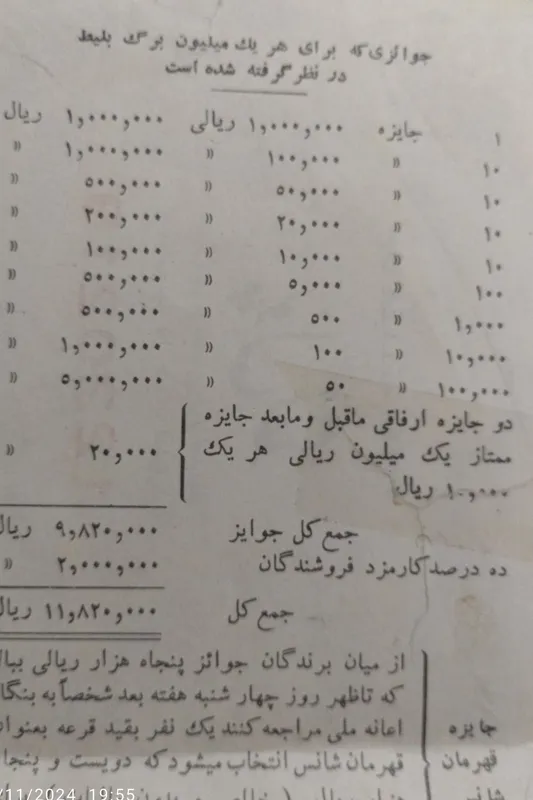 جوائزی‌که برای هر یك میلیون برگ بلیط
در نظر گرفته شده است
۱ جایزه ۱,۰۰۰,۰۰۰ ریالی ۱,۰۰۰,۰۰۰ ریال
۱۰ « ۱۰۰,۰۰۰ « ۱,۰۰۰,۰۰۰ «
۱۰ « ۵۰,۰۰۰ « ۵۰۰,۰۰۰ «
۱۰ « ۲۰,۰۰۰ « ۲۰۰,۰۰۰ «
۱۰ « ۱۰,۰۰۰ « ۱۰۰,۰۰۰ «
۱۰۰ « ۵,۰۰۰ « ۵۰۰,۰۰۰ «
۱,۰۰۰ « ۵۰۰ « ۵۰۰,۰۰۰ «
۱۰,۰۰۰ « ۱۰۰ « ۱,۰۰۰,۰۰۰ «
۱۰۰,۰۰۰ « ۵۰ « ۵,۰۰۰,۰۰۰ «
دو جایزه ارفاقی ماقبل ومابعد جایزه
ممتاز یك میلیون ریالی هر یك ۲۰,۰۰۰ «
۱۰,۰۰۰ ریال
جمع کل جوایز ۹,۸۲۰,۰۰۰ ریال
ده درصد کارمزد فروشندگان ۲,۰۰۰,۰۰۰ «
جمع کل ۱۱,۸۲۰,۰۰۰ ریال
از میان برندگان جوائز پنجاه هزار ریالی ببالا
که تاظهر روز چهار شنبه هفته بعد شخصاً به بنگا
جایزه اعانه ملی مراجعه کنند یك نفر بقید قرعه بعنوان
قهرمان قهرمان شانس انتخاب میشود که دویست و پنجا
شانس
/11/2024 19:55